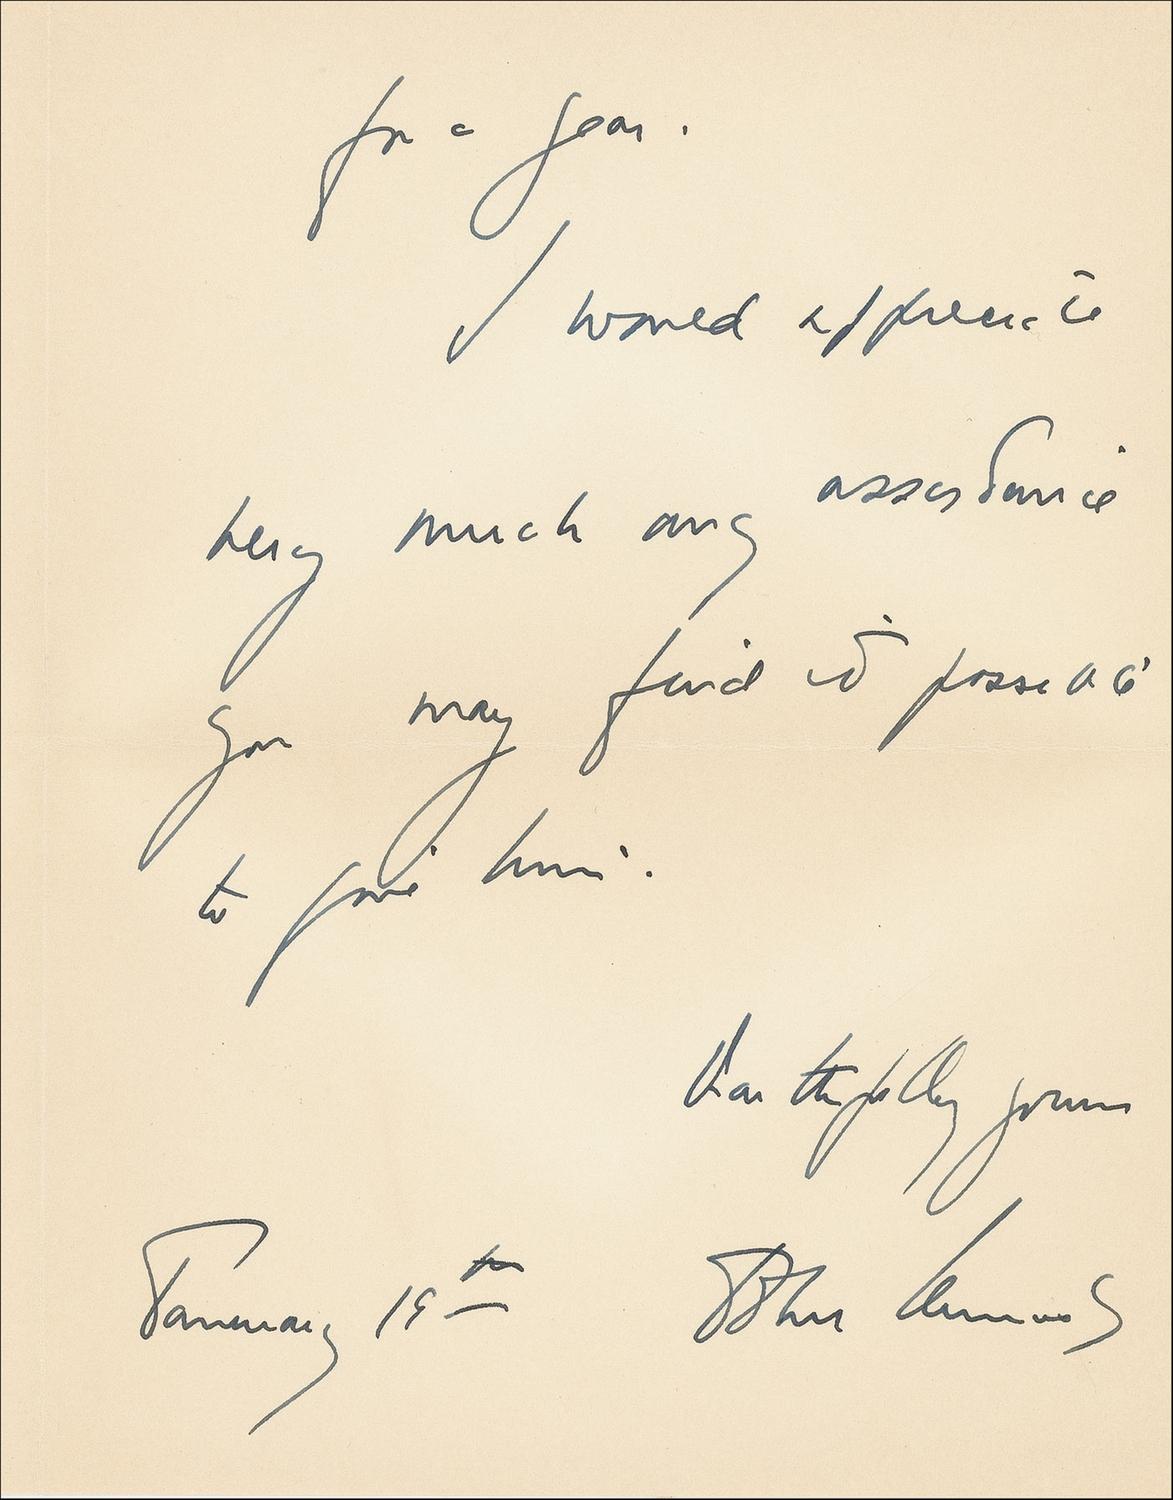 for a year.
I would appreciate
very much any assistance
you may find it possible
to give him.
Faithfully yours
January 19th